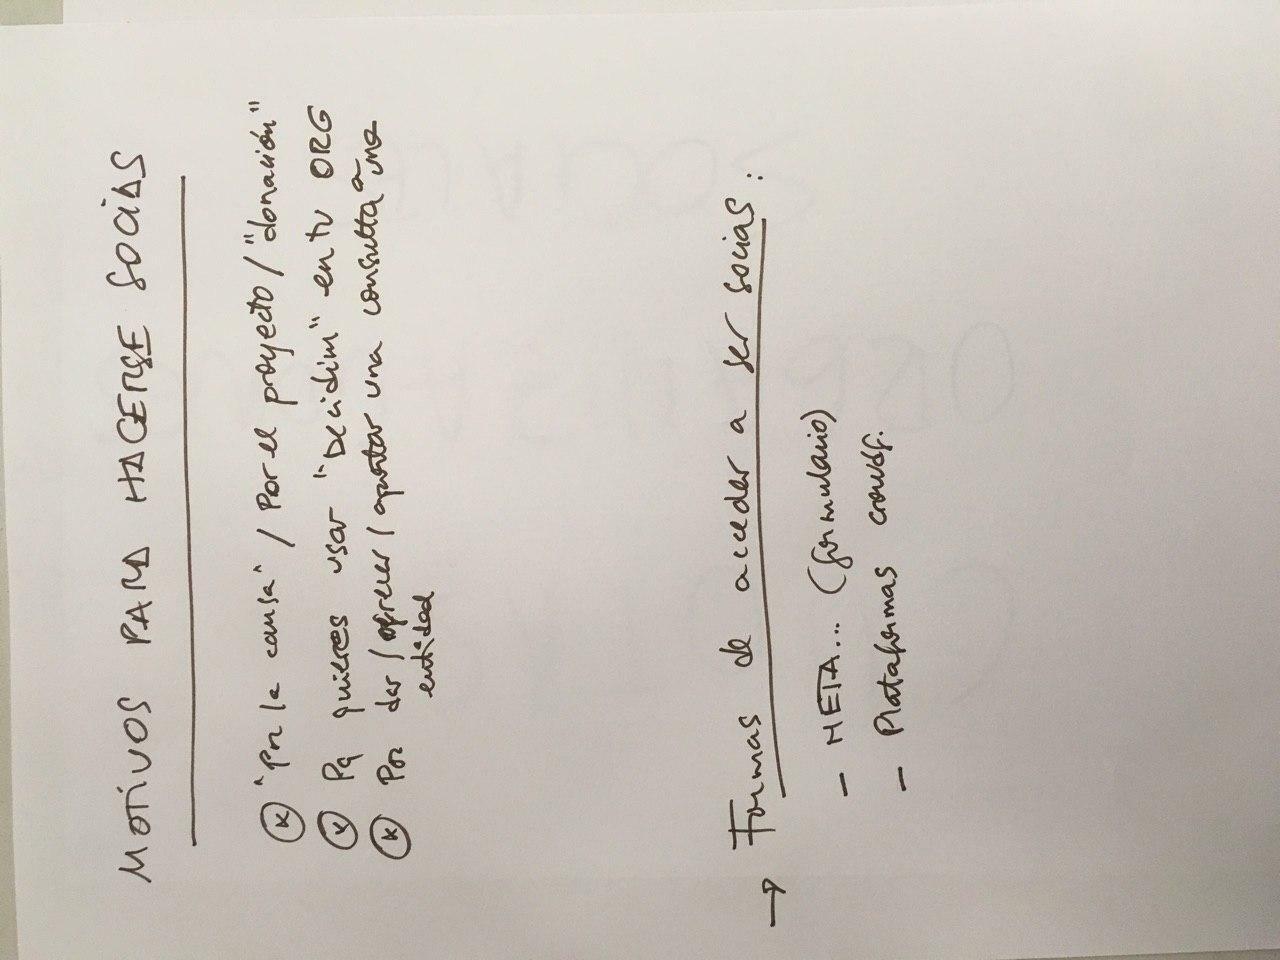 MOTIVOS PARA HACERSE SOCIAS
"Por la causa" / Por el proyecto / "donación"
Pq quieres usar "Decidim" en tu ORG
Por dar / ofrecer / aportar una consulta a una
entidad
→ Formas de acceder a ser socias:
- META... (formulario)
- Plataformas crowdf.